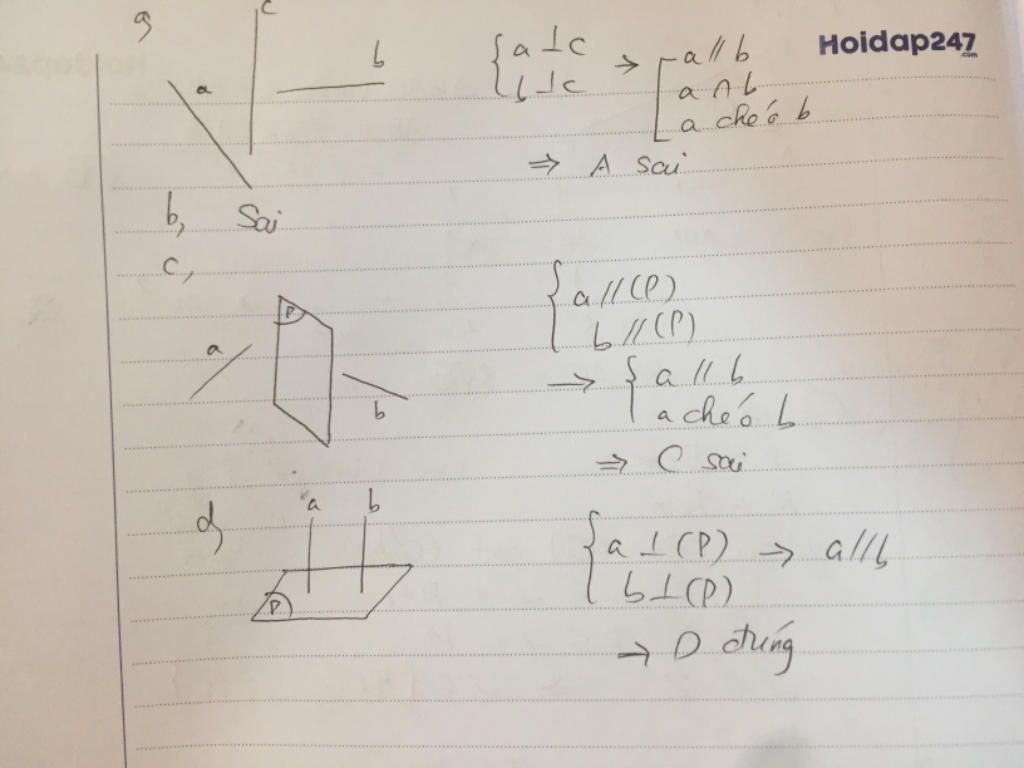 a, c
a
b
{ a ⊥ c
b ⊥ c → [ a // b
a ∩ b
a chéo b
⇒ A sai
Hoidap247
.com
b, Sai
c,
P
a
b
{ a // (P)
b // (P)
→ { a // b
a chéo b
⇒ C sai
d,
a b
P
{ a ⊥ (P) → a // b
b ⊥ (P)
→ D đúng